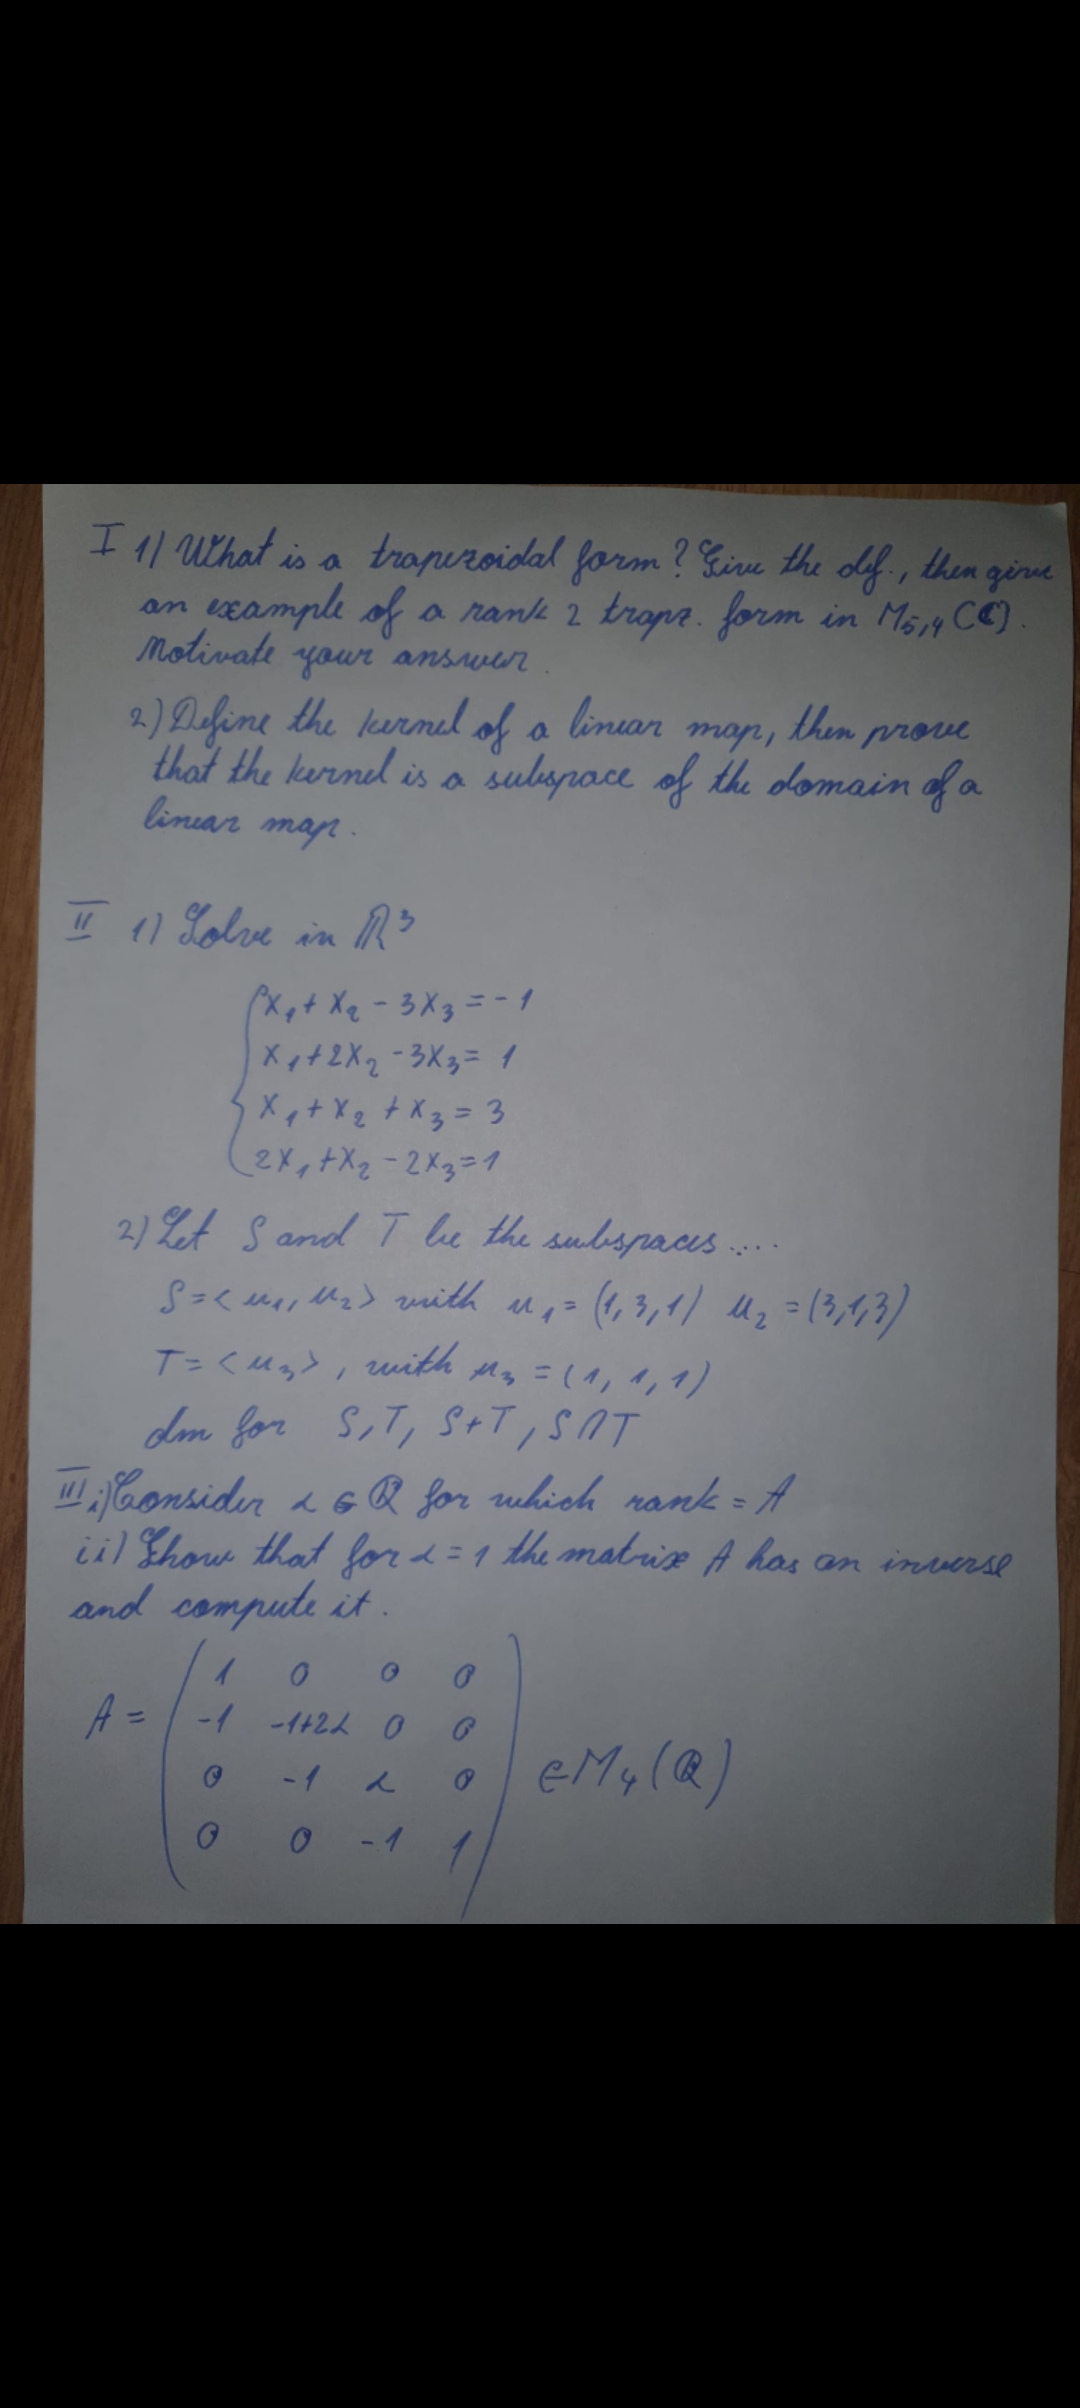 I 1) What is a trapezoidal form? Give the def., then give
an example of a rank 2 trapz. form in M₅,₄ (ℂ).
Motivate your answer.
2) Define the kernel of a linear map, then prove
that the kernel is a subspace of the domain of a
linear map.
II 1) Solve in ℝ³
x₁ + x₂ - 3x₃ = -1
x₁ + 2x₂ - 3x₃ = 1
x₁ + x₂ + x₃ = 3
2x₁ + x₂ - 2x₃ = 1
2) Let S and T be the subspaces ....
S = <u₁, u₂> with u₁ = (1, 3, 1) u₂ = (3, 1, 3)
T = <u₃>, with u₃ = (1, 1, 1)
dm for S, T, S+T, S∩T
III i) Consider α ∈ ℚ for which rank = A
ii) Show that for α = 1 the matrix A has an inverse
and compute it.
1 0 0 0
A = -1 -1+2α 0 0
0 -1 α 0 ∈ M₄(ℚ)
0 0 -1 1